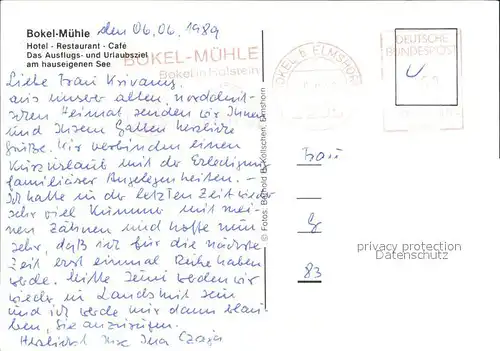 Bokel-Mühle
Hotel - Restaurant - Café
Das Ausflugs- und Urlaubsziel
am hauseigenen See
den 06.06.1989
BOKEL-MÜHLE
Bokel in Holstein
BOKEL b ELMSHORN
DEUTSCHE
BUNDESPOST
Liebe Frau
aus unserer alten, norddeut-
schen Heimat senden wir Ihnen
und Ihrem Gatten herzliche
Grüße. Wir verbinden einen
Kurzurlaub mit der Erledigung
familiärer Angelegenheiten. –
Ich hatte in der letzten Zeit wieder
sehr viel Kummer mit mei-
nen Zähnen und hoffe nun
sehr, daß ich für die nächste
Zeit erst einmal Ruhe haben
werde. Mitte Juni werden wir
wieder in Landshut sein
und ich werde mir dann erlau-
ben, Sie anzurufen.
Herzlichst Ihre Ina
© Fotos: Berthold B. Köllschen, Elmshorn
83
privacy protection
Datenschutz